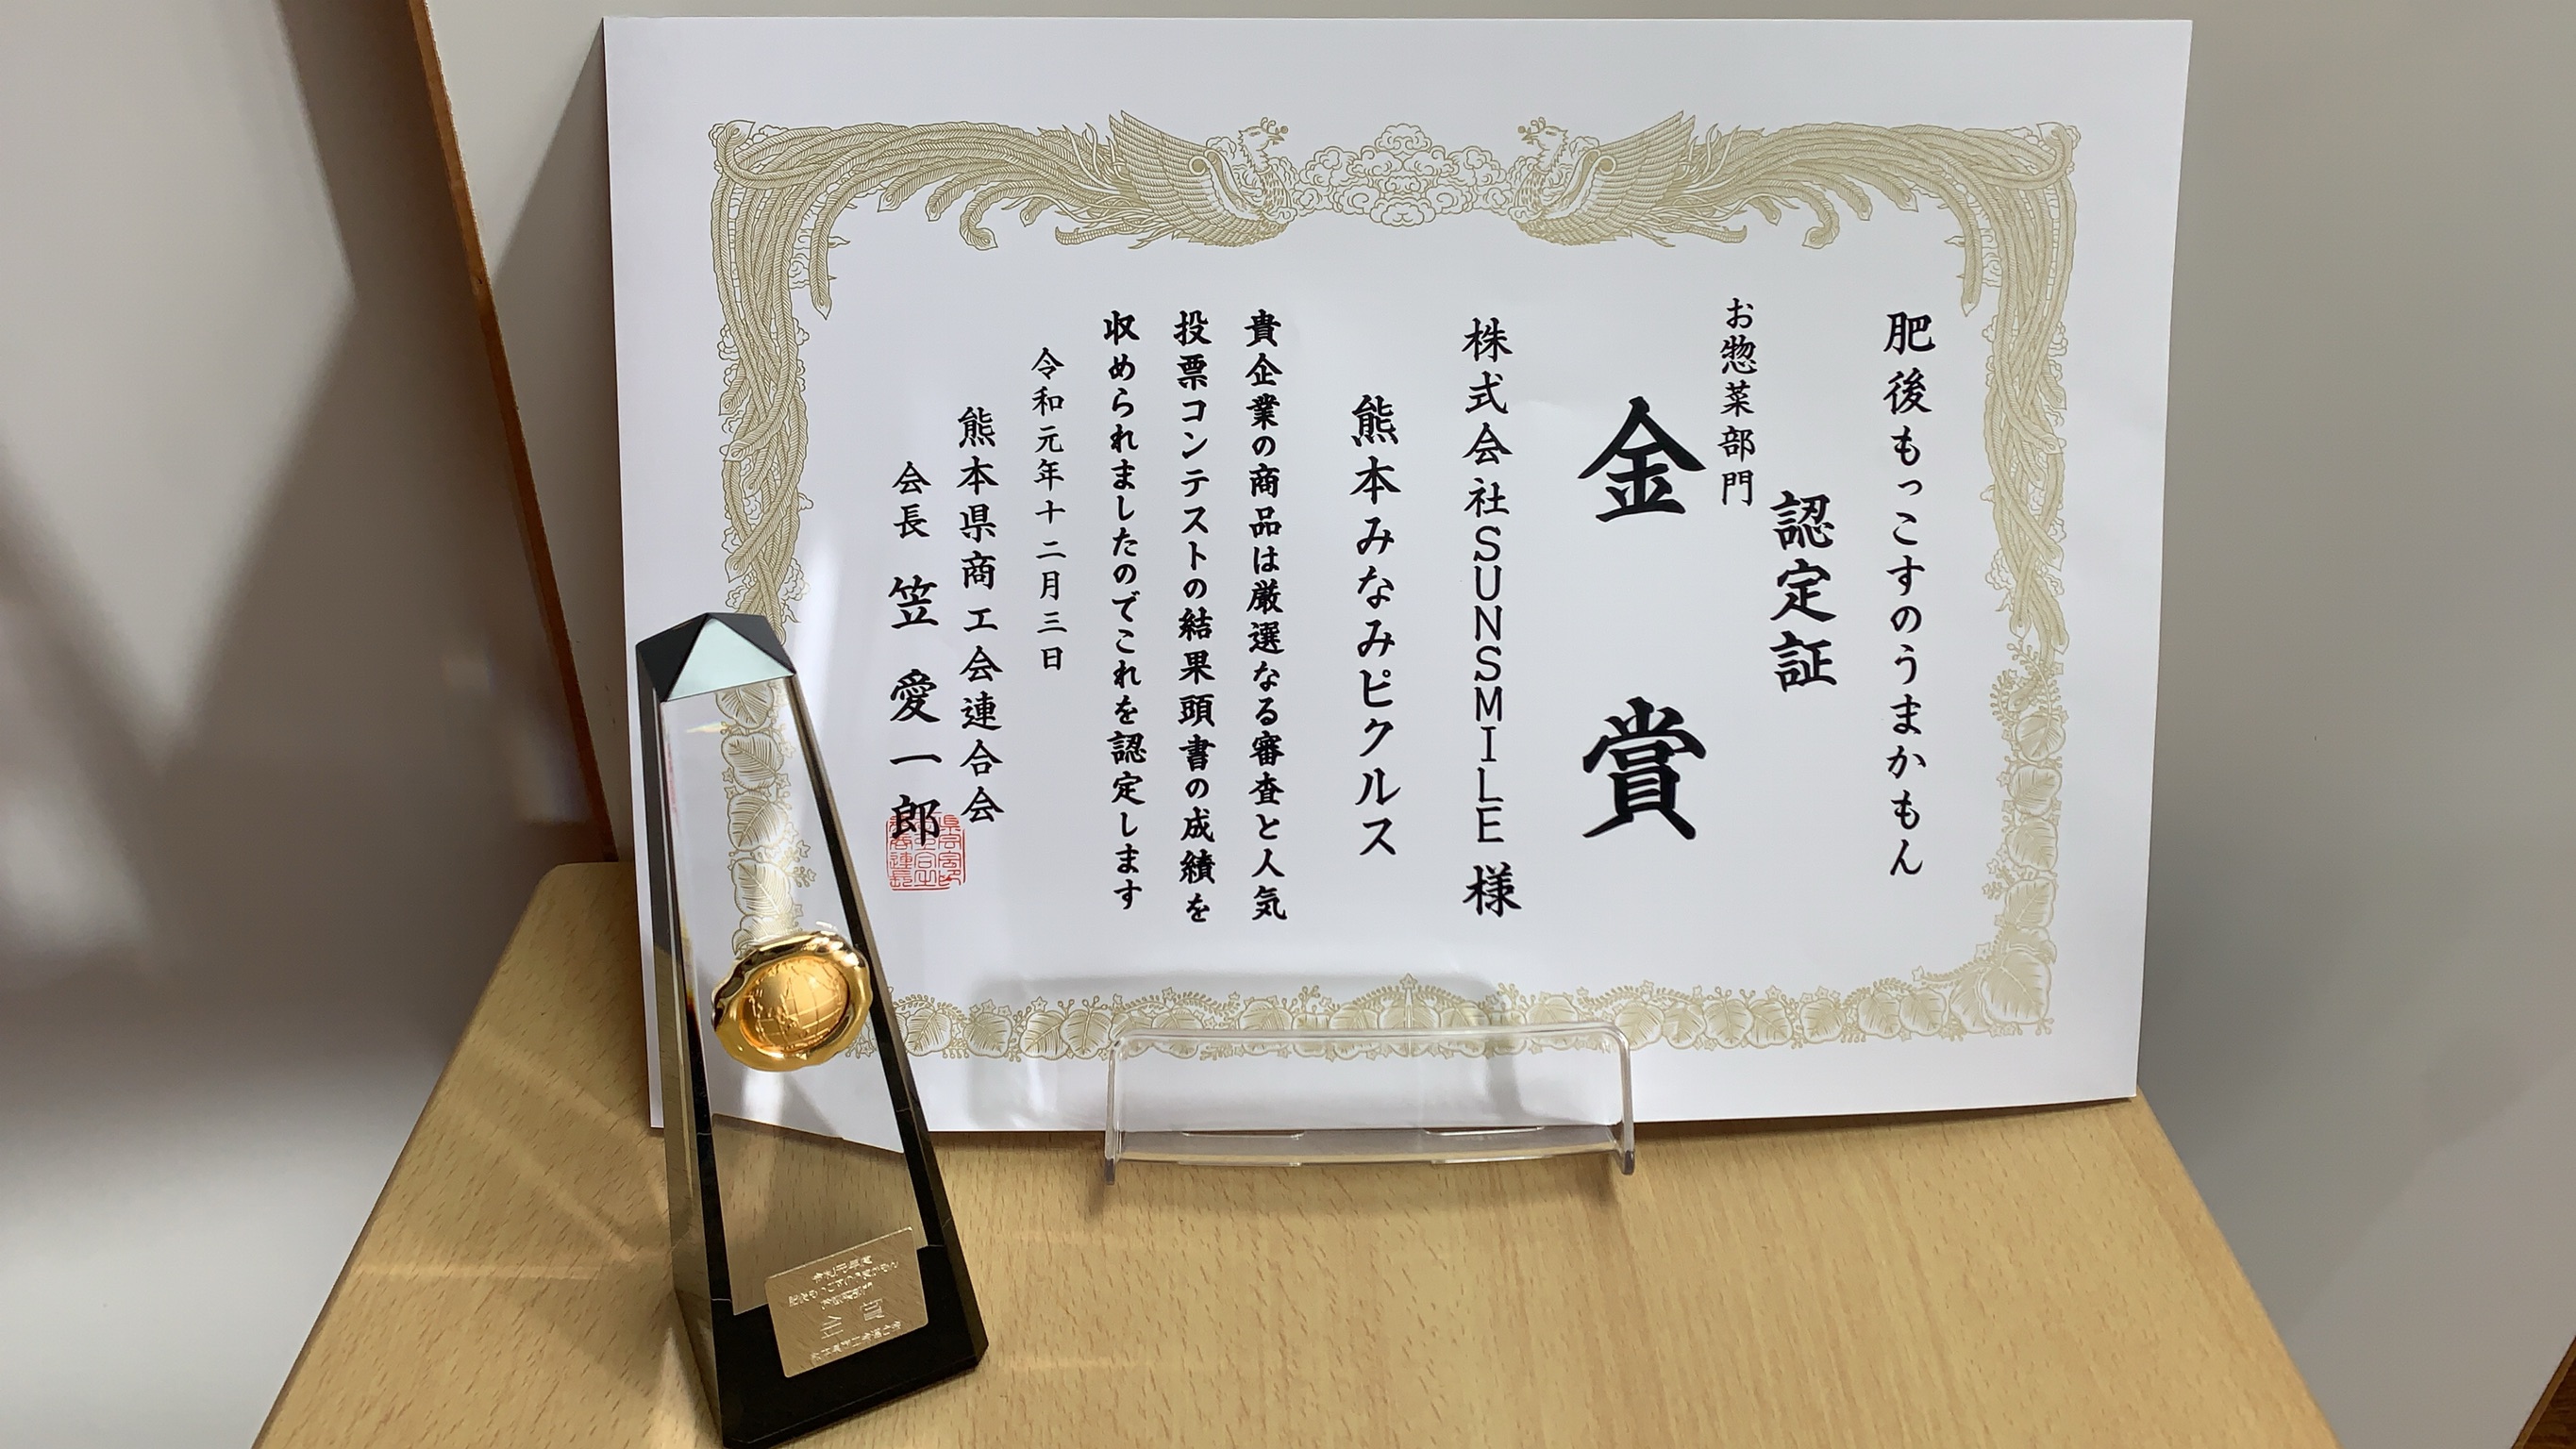 肥後もっこすのうまかもん
認定証
お惣菜部門
金賞
株式会社SUNSMILE 様
熊本みなみピクルス
貴企業の商品は厳選なる審査と人気
投票コンテストの結果頭書の成績を
収められましたのでこれを認定します
令和元年十二月三日
熊本県商工会連合会
会長 笠 愛一郎